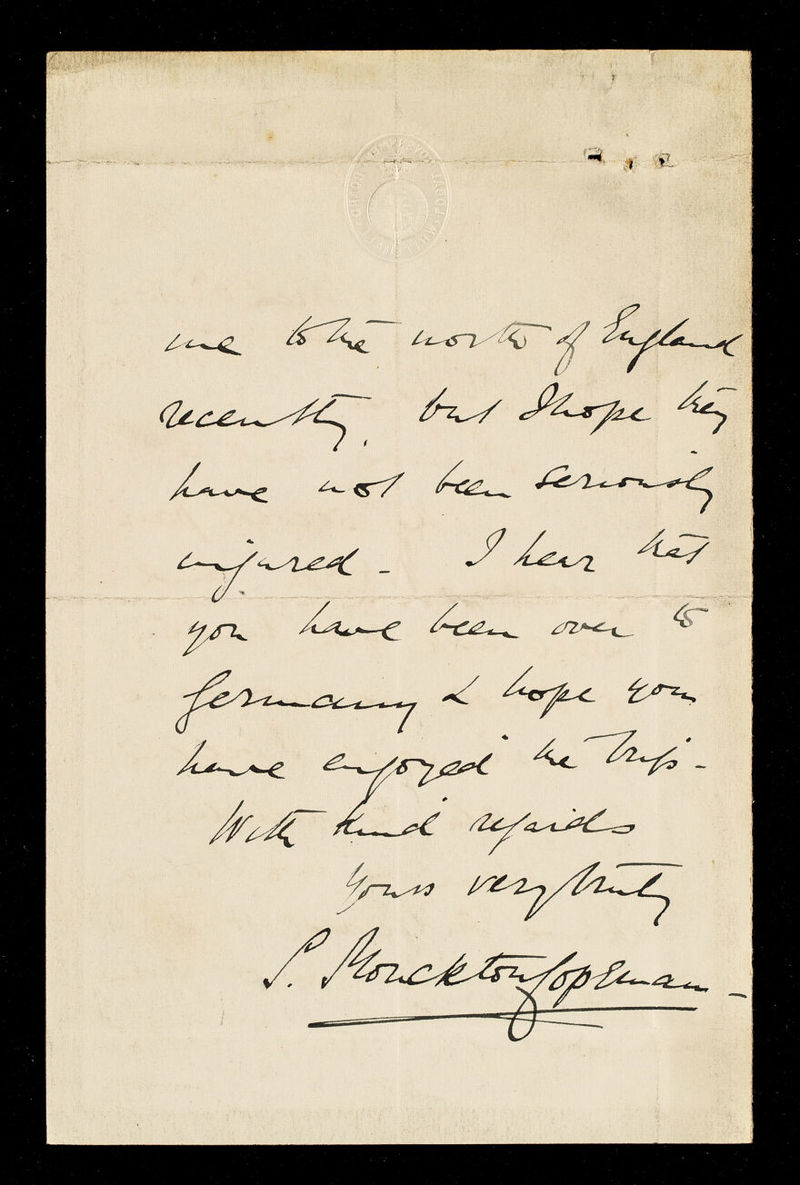 me to the north of England
recently, but I hope they
have not been seriously
injured - I hear that
you have been over to
Germany & hope you
have enjoyed the trip -
With kind regards
Yours very truly
S. Monckton Copeman -